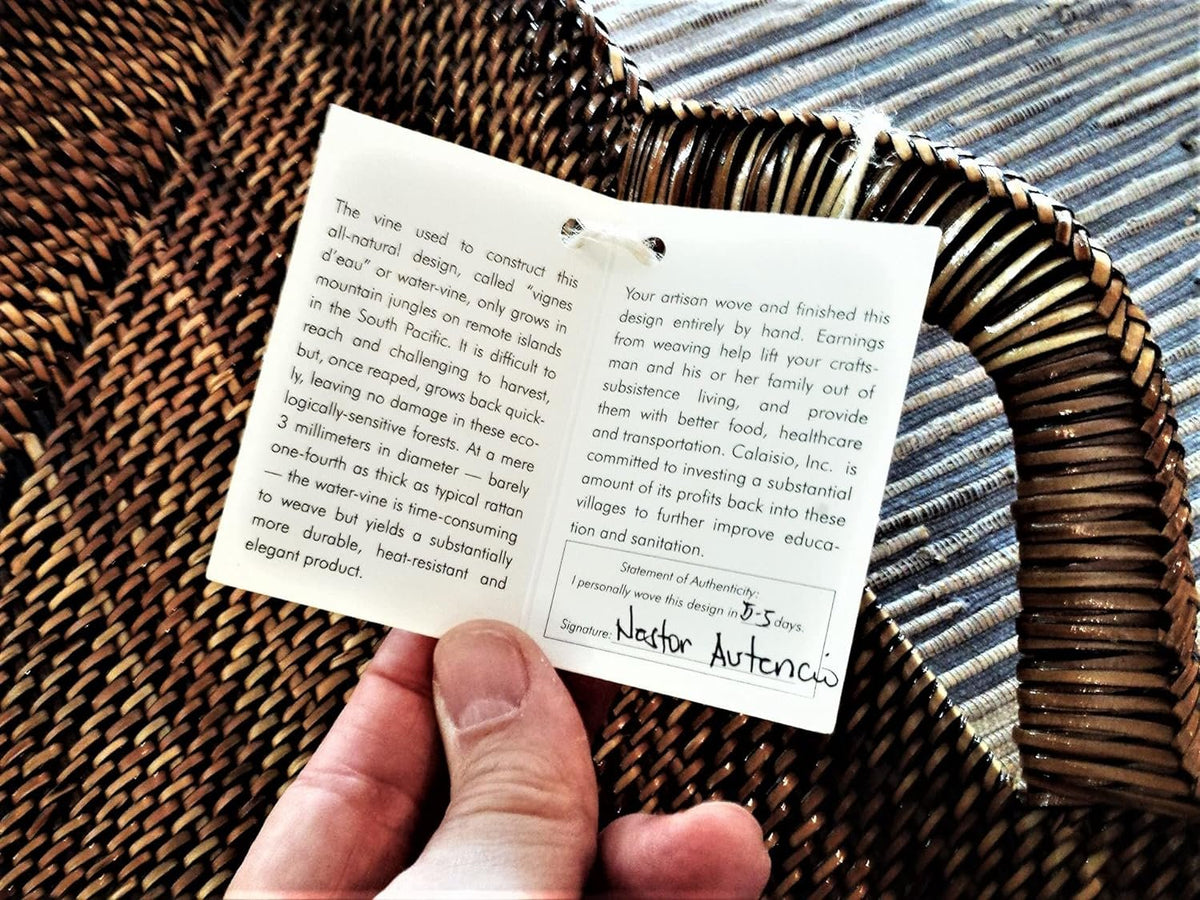 The vine used to construct this
all-natural design, called "vignes
d'eau" or water-vine, only grows in
mountain jungles on remote islands
in the South Pacific. It is difficult to
reach and challenging to harvest,
but, once reaped, grows back quick-
ly, leaving no damage in these eco-
logically-sensitive forests. At a mere
3 millimeters in diameter — barely
one-fourth as thick as typical rattan
— the water-vine is time-consuming
to weave but yields a substantially
more durable, heat-resistant and
elegant product.
Your artisan wove and finished this
design entirely by hand. Earnings
from weaving help lift your crafts-
man and his or her family out of
subsistence living, and provide
them with better food, healthcare
and transportation. Calaisio, Inc. is
committed to investing a substantial
amount of its profits back into these
villages to further improve educa-
tion and sanitation.
Statement of Authenticity:
I personally wove this design in 5-5 days.
Signature: Nastor Autencio